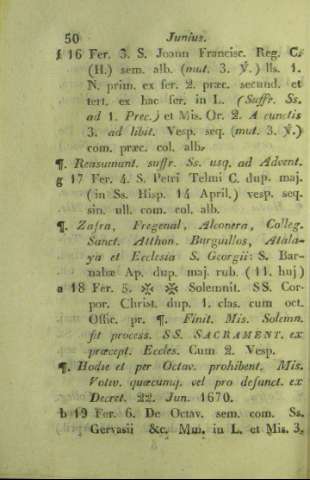 50 Junius.
f 16 Fer. 3. S. Joann Francisc. Reg. C.
(H.) sem. alb. (mut. 3. ℣.) lls. 1.
N. prim. ex fer. 2. præc. secund. et
tert. ex hac fer. in L. (Suffr. Ss.
ad 1. Prec.) et Mis. Or. 2. A cunctis
3. ad libit. Vesp. seq. (mut. 3. ℣.)
com. præc. col. alb.
¶. Reasumunt. suffr. Ss. usq. ad Advent.
g 17 Fer. 4. S. Petri Telmi C. dup. maj.
(in Ss. Hisp. 14 April.) vesp. seq.
sin. ull. com. col. alb.
¶. Zafra, Fregenal, Alconera, Colleg.
Sanct. Atthon. Burguillos, Atala-
ya et Ecclesia S. Georgii: S. Bar-
nabæ Ap. dup. maj. rub. (11. huj)
a 18 Fer. 5. ✠ ✠ Solemnit. SS. Cor-
por. Christ. dup. 1. clas. cum oct.
Offic. pr. ¶. Finit. Mis. Solemn.
fit process. SS. SACRAMENT. ex
præcept. Eccles. Cum 2. Vesp.
¶. Hodie et per Octav. prohibent. Mis.
Votiv. quæcumq. vel pro defunct. ex
Decret. 22. Jun. 1670.
b 19 Fer. 6. De Octav. sem. com. Ss.
Gervasii &c. Mm. in L. et Mis. 3.